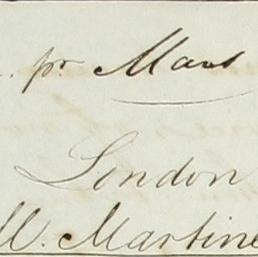 . pr Mars
London
W. Martine